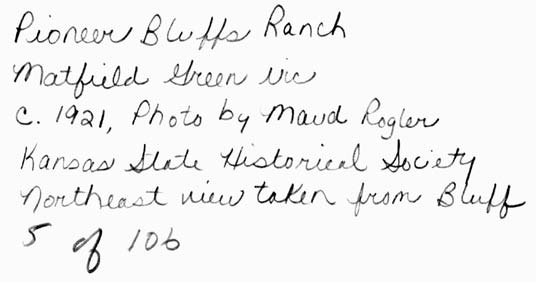 Pioneer Bluffs Ranch
Matfield Green vic
c. 1921, Photo by Maud Rogler
Kansas State Historical Society
Northeast view taken from Bluff
5 of 106